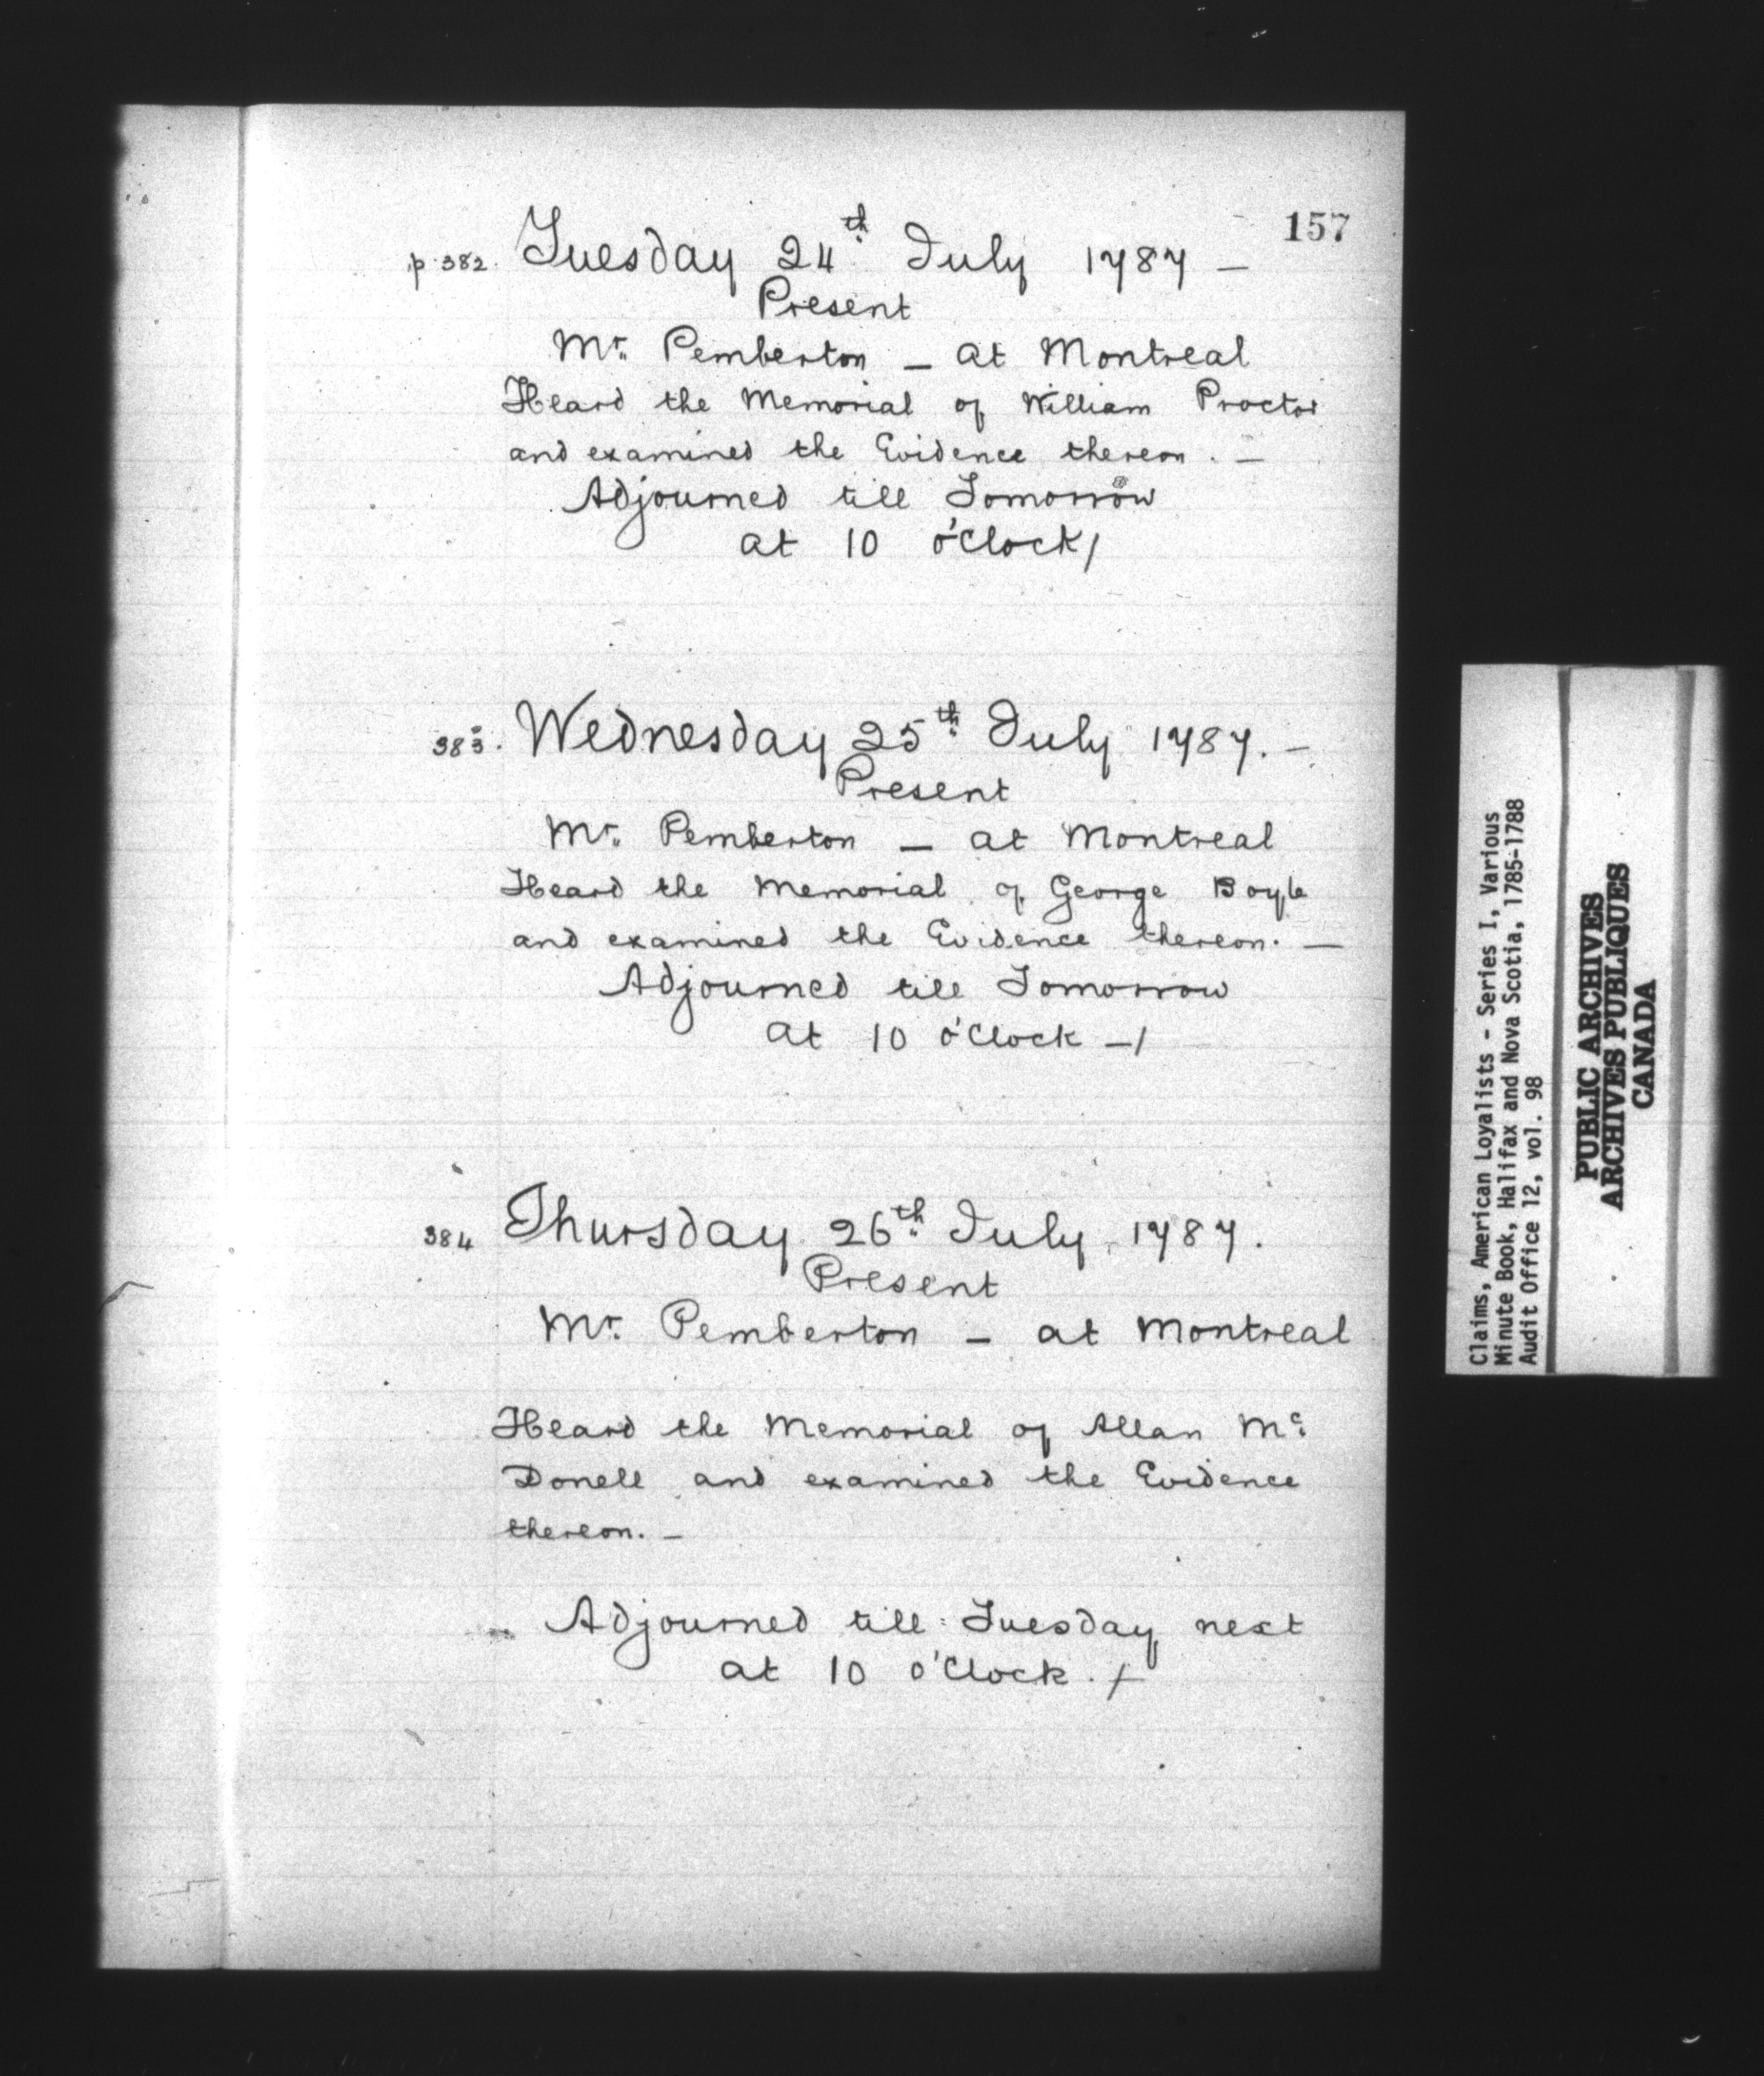 157
p. 382. Tuesday 24th July 1787 —
Present
Mr. Pemberton — at Montreal
Heard the Memorial of William Proctor
and examined the Evidence thereon. —
Adjourned till Tomorrow
at 10 o'Clock/
383. Wednesday 25th July 1787. —
Present
Mr. Pemberton — at Montreal
Heard the Memorial of George Boyle
and examined the Evidence thereon. —
Adjourned till Tomorrow
at 10 o'Clock —/
384 Thursday 26th July 1787.
Present
Mr. Pemberton — at Montreal
Heard the Memorial of Allan Mc
Donell and examined the Evidence
thereon. —
Adjourned till Tuesday next
at 10 o'Clock. /
Claims, American Loyalists - Series I, Various
Minute Book, Halifax and Nova Scotia, 1785-1788
Audit Office 12, vol. 98
PUBLIC ARCHIVES
ARCHIVES PUBLIQUES
CANADA